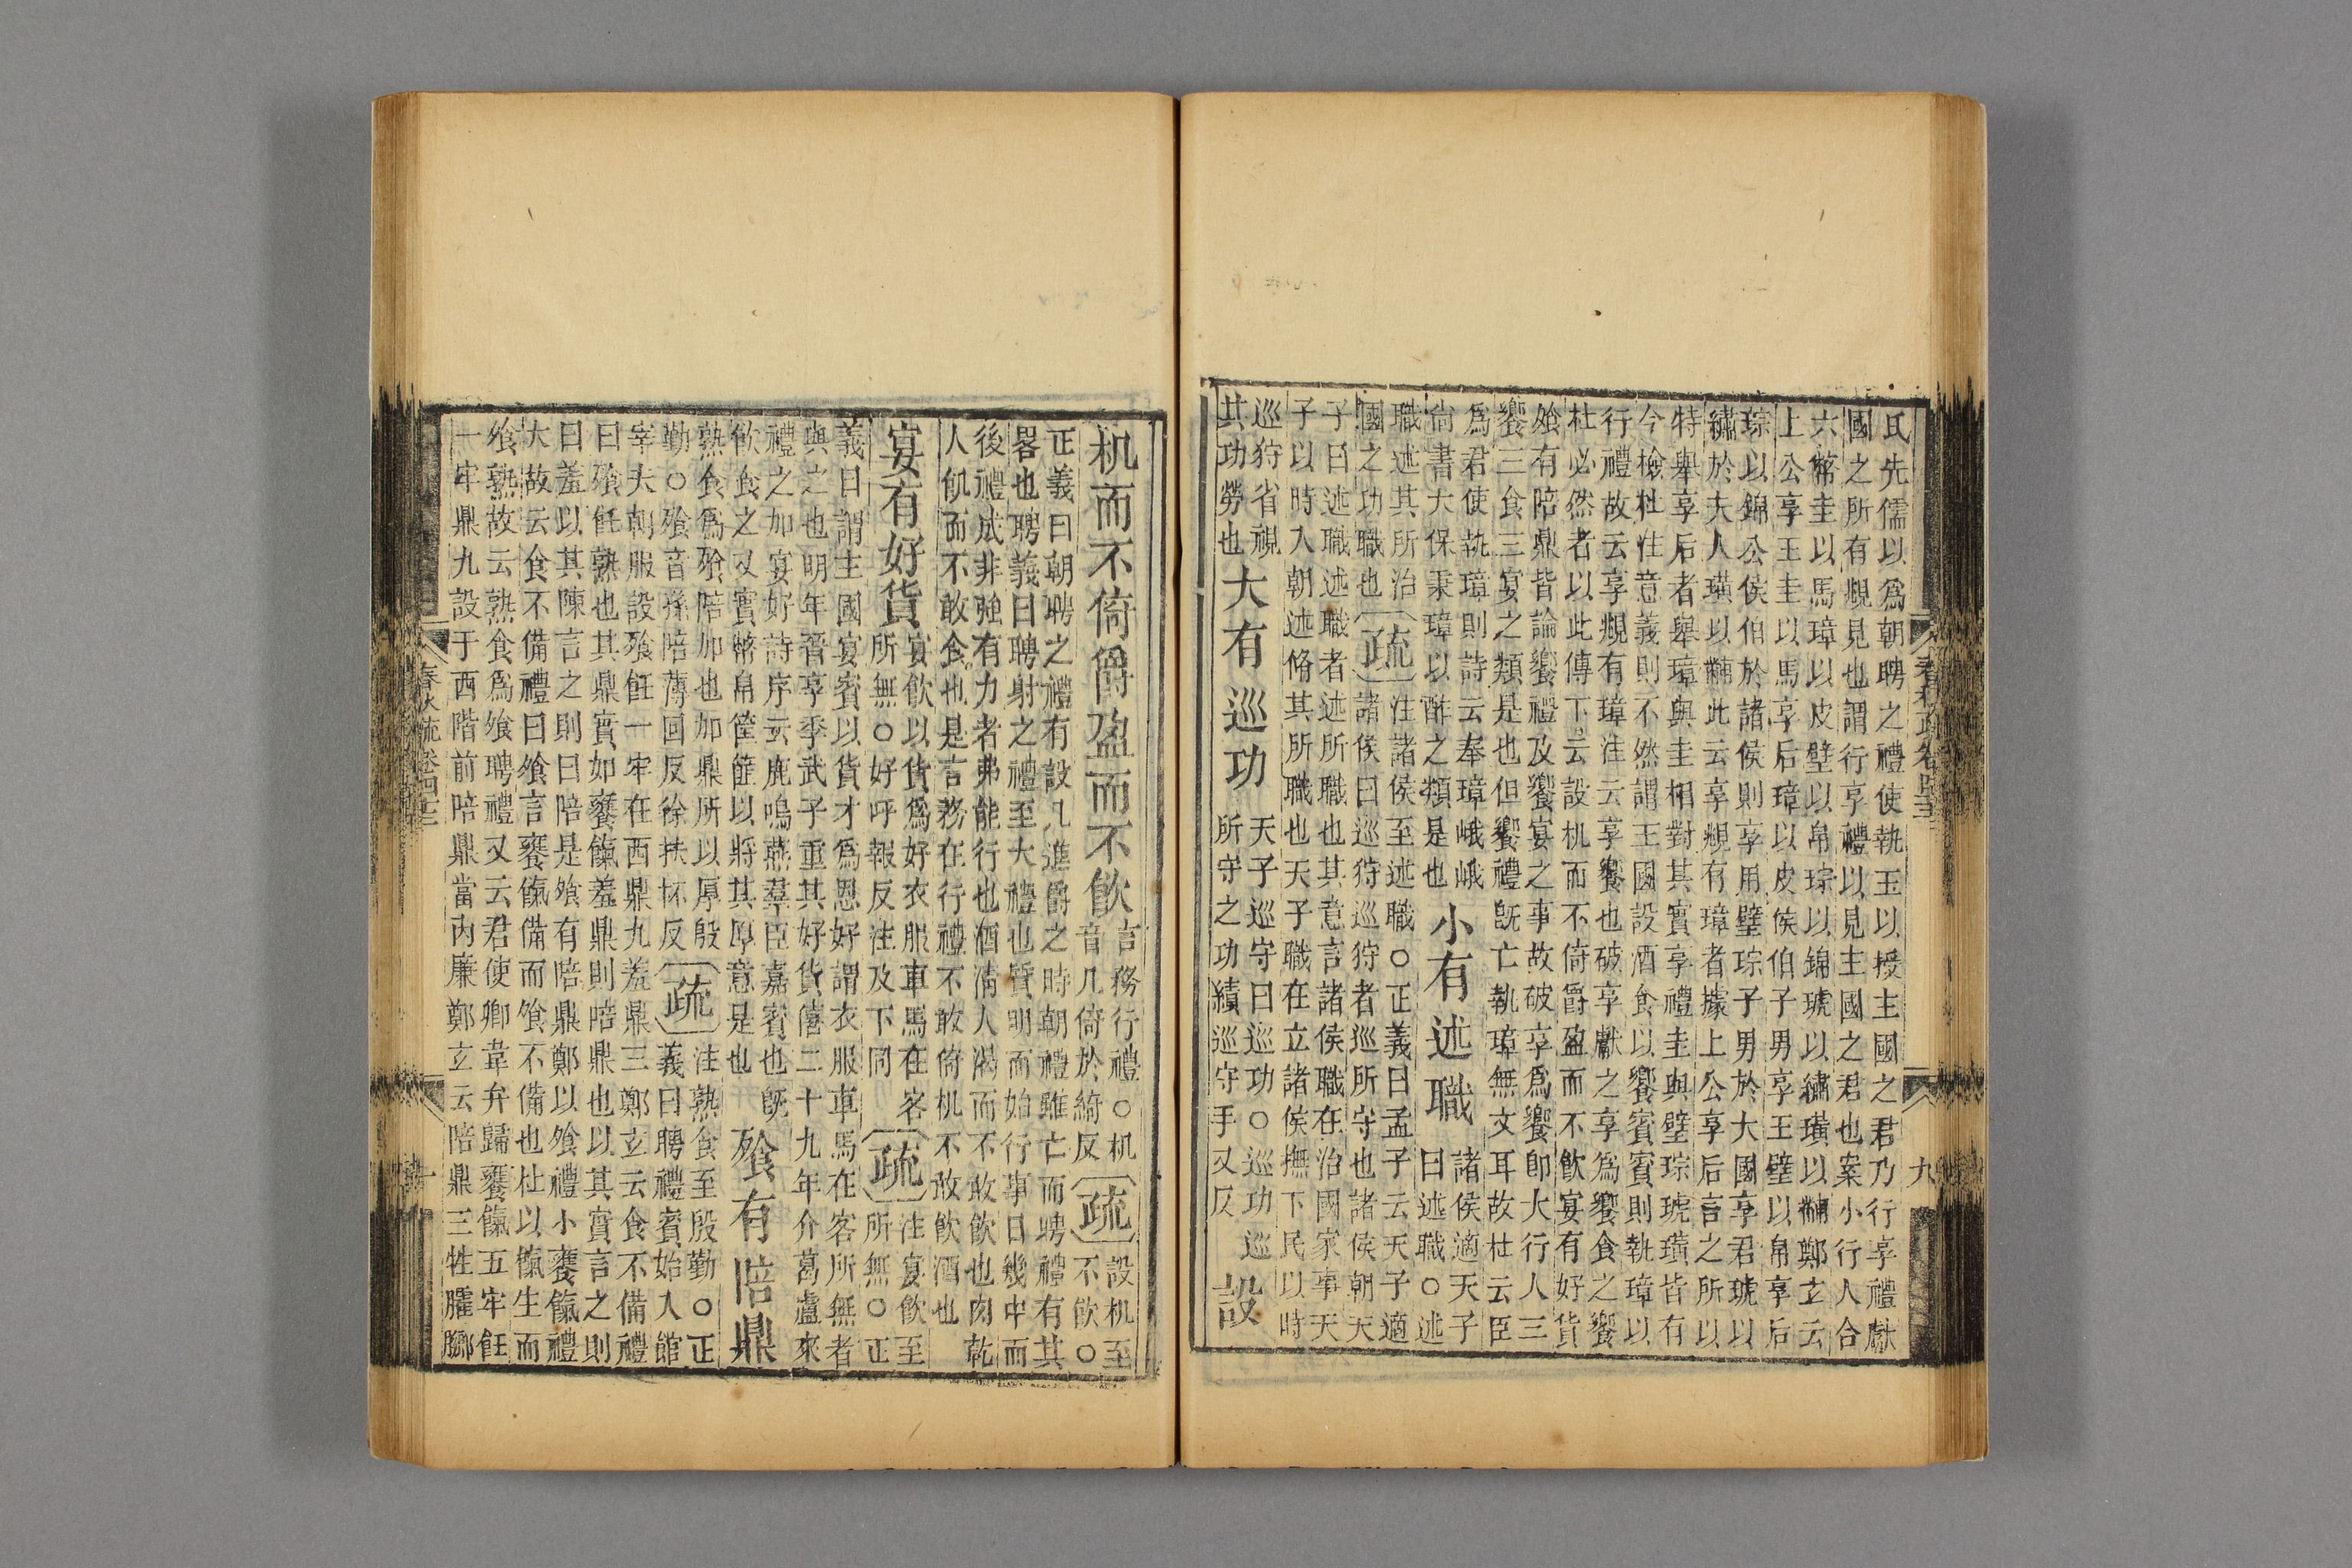 氏先儒以爲朝聘之禮使執玉以授主國之君乃行享禮獻
國之所有覜見也謂行享禮以見主國之君也案小行人合
六幣圭以馬璋以皮璧以帛琮以錦琥以繡璜以黼鄭玄云
上公享王圭以馬享后璋以皮侯伯子男享王璧以帛享后
琮以錦公侯伯於諸侯則享用璧琮子男於大國享君琥以
繡於夫人璜以黼此云享覜有璋者據上公享后言之所以
特舉享后者舉璋與圭相對其實享禮圭與璧琮琥璜皆有
今檢杜注意義則不然謂王國設酒食以饗賓賓則執璋以
行禮故云享覜有璋注云享饗也破享獻之享爲饗食之饗
杜必然者以此傳下云設机而不倚爵盈而不飮宴有好貨
飧有陪鼎皆論饗禮及饗宴之事故破享爲饗卽大行人三
饗三食三宴之類是也但饗禮旣亡執璋無文耳故杜云臣
爲君使執璋則詩云奉璋峨峨
尙書大保秉璋以酢之類是也
小有述職
諸侯適天子
曰述職○述
職述其所治
國之功職也
疏
注諸侯至述職○正義曰孟子云天子適
諸侯曰巡狩巡狩者巡所守也諸侯朝天
子曰述職述職者述所職也其意言諸侯職在治國家事天
子以時入朝述脩其所職也天子職在立諸侯撫下民以時
巡狩省視
其功勞也
大有巡功
天子巡守曰巡功○巡功巡
所守之功績巡守手又反
設
九
机而不倚爵盈而不飮
言務行禮○机
音几倚於綺反
疏
設机至
不飮○
正義曰朝聘之禮有設几進爵之時朝禮雖亡而聘禮有其
畧也聘義曰聘射之禮至大禮也質明而始行事日幾中而
後禮成非強有力者弗能行也酒淸人渴而不敢飮也肉乾
人飢而不敢食也是言務在行禮不敢倚机不敢飮酒也
宴有好貨
宴飮以貨爲好衣服車馬在客
所無○好呼報反注及下同
疏
注宴飮至
所無○正
義曰謂主國宴賓以貨才爲恩好謂衣服車馬在客所無者
與之也明年晉享季武子重其好貨僖二十九年介葛盧來
禮之加宴好詩序云鹿鳴燕羣臣嘉賓也旣
飮食之又實幣帛筐篚以將其厚意是也
飧有陪鼎
熟食爲飧陪加也加鼎所以厚殷
勤○飧音孫陪薄回反徐扶杯反
疏
注熟食至殷勤○正
義曰聘禮賓始入館
宰夫朝服設飧飪一牢在西鼎九羞鼎三鄭玄云食不備禮
曰飧飪熟也其鼎實如饔餼羞鼎則陪鼎也以其實言之則
曰羞以其陳言之則曰陪是飧有陪鼎鄭以飧禮小饔餼禮
大故云食不備禮曰飧言饔餼備而飧不備也杜以餼生而
飧熟故云熟食爲飧聘禮又云君使卿韋弁歸饔餼五牢飪
一牢鼎九設于西階前陪鼎當內廉鄭玄云陪鼎三牲臛膷